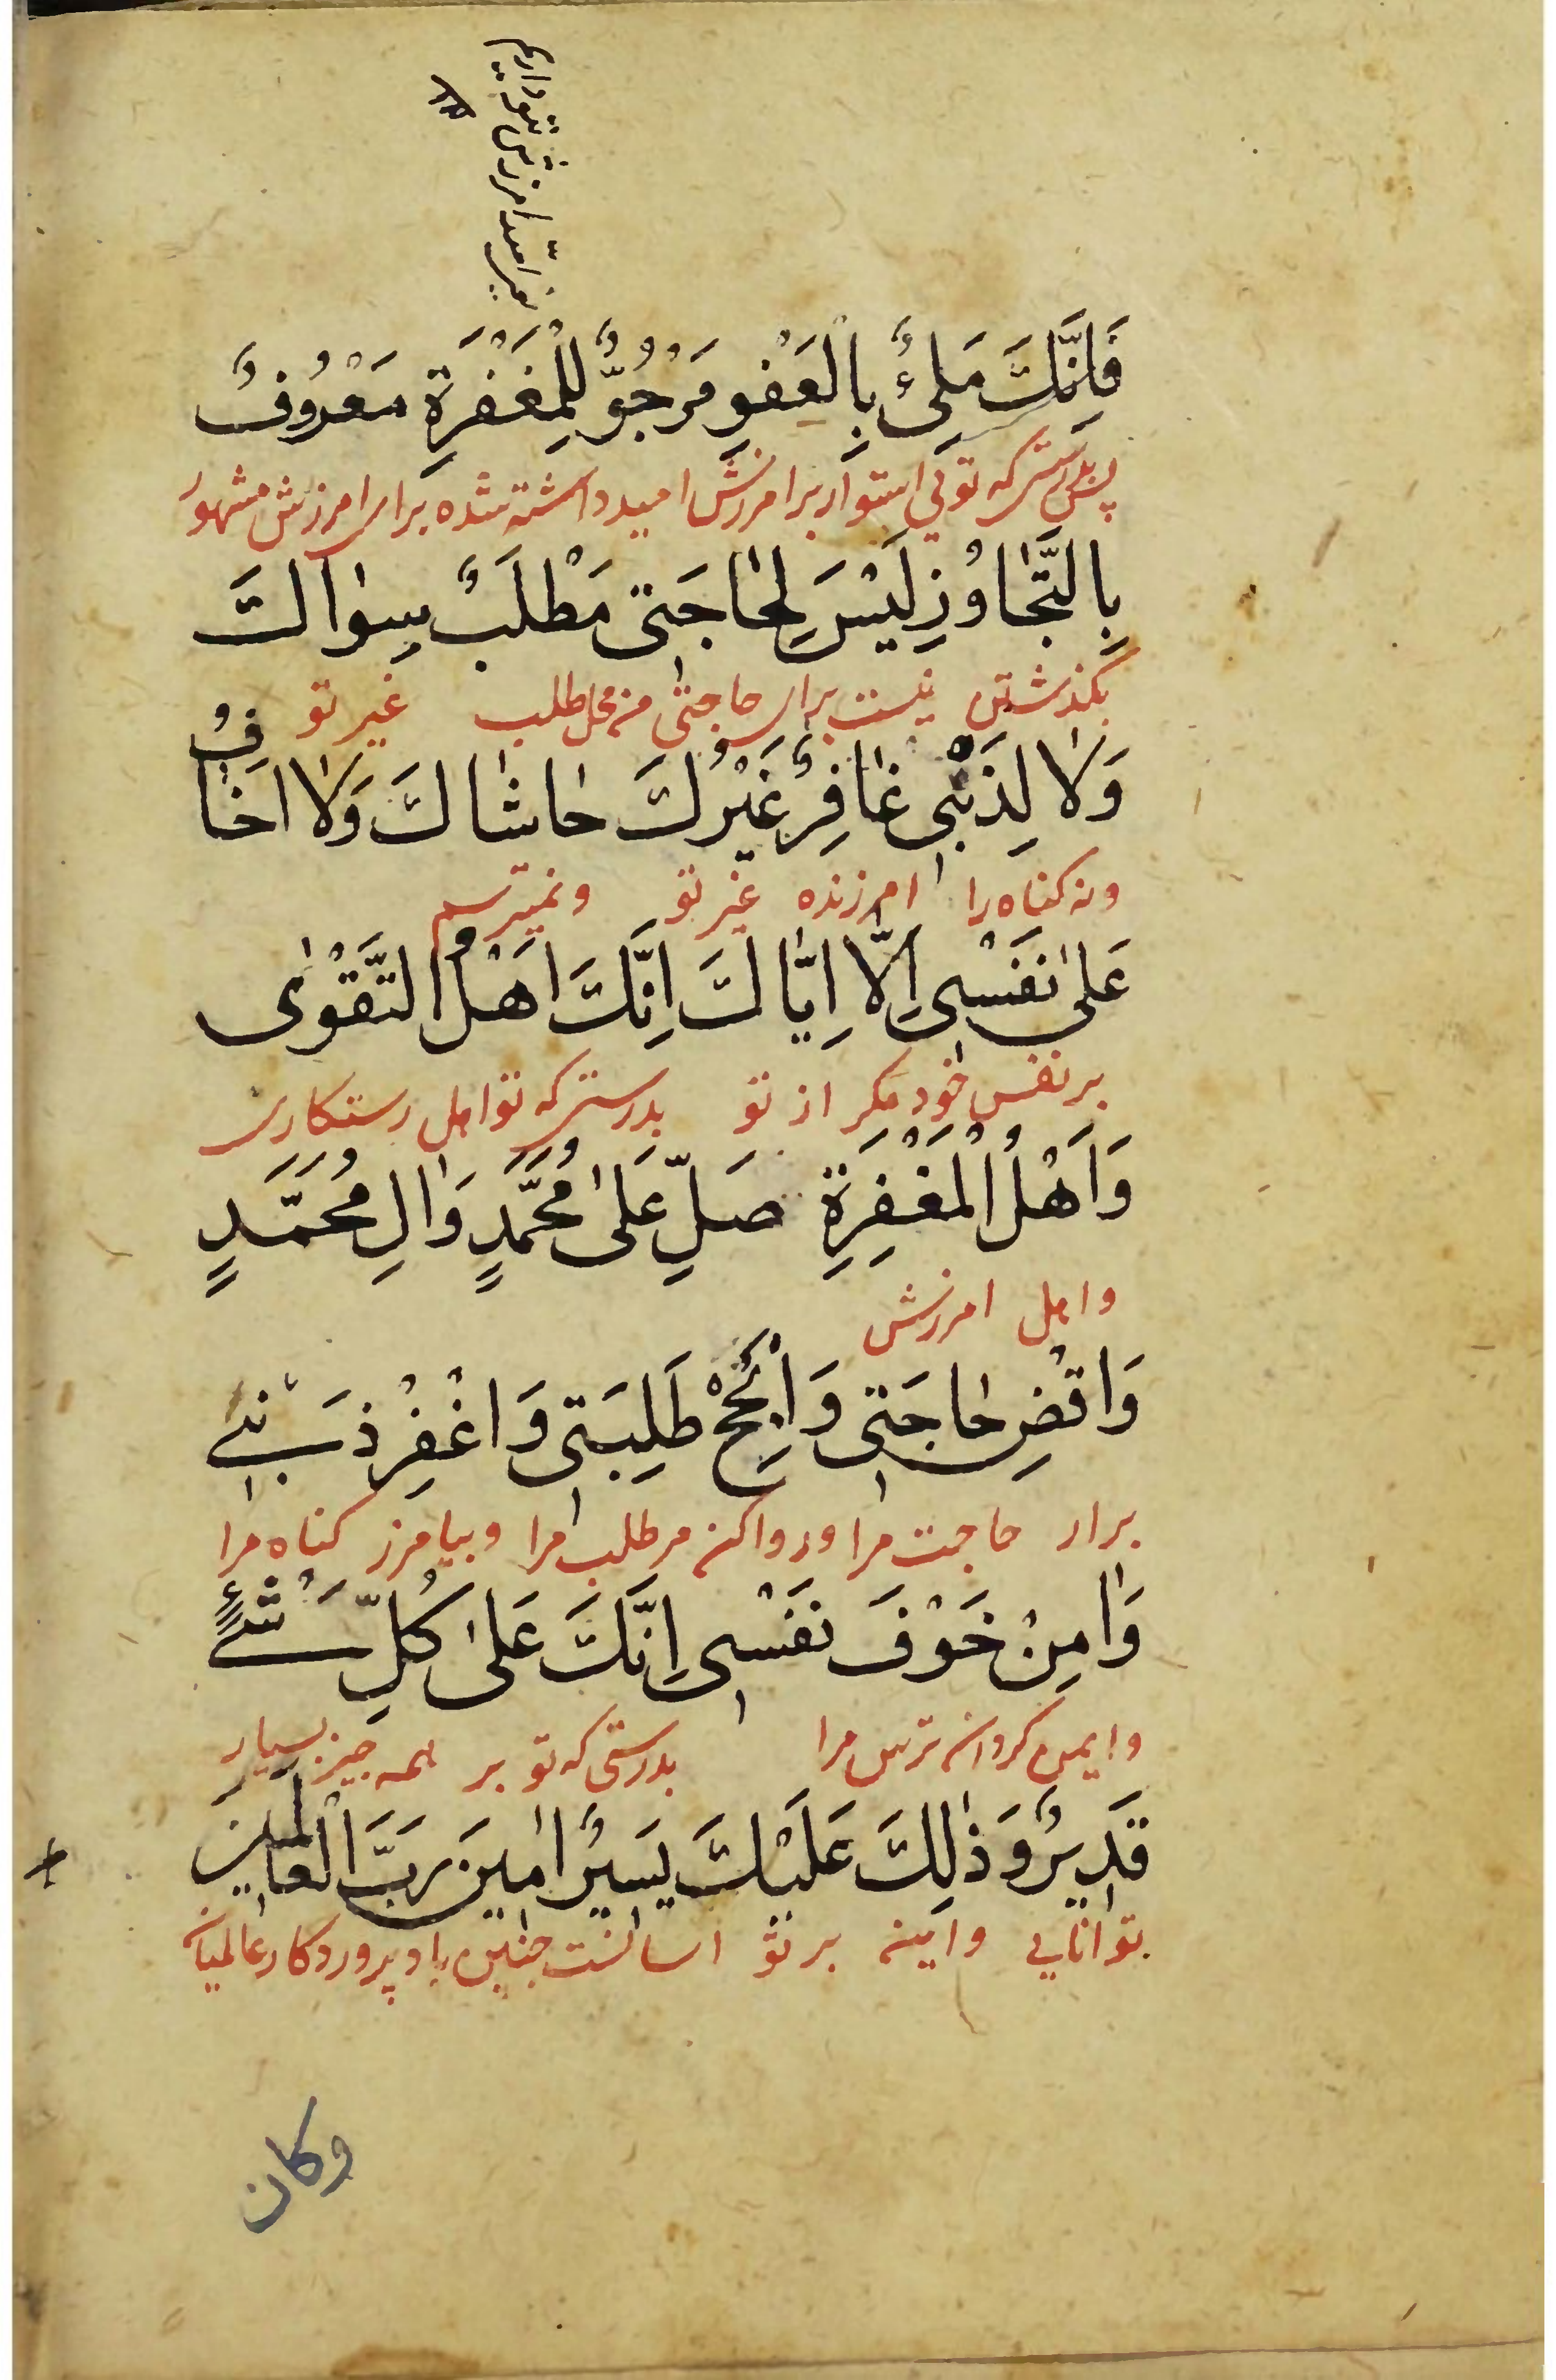 یعنی امید امرزش بتو داریم
۱۲
فَاِنَّكَ مَلِیٌٔ بِالْعَفْوِ مَرْجُوٌّ لِلْمَغْفِرَةِ مَعْرُوفٌ
پس بدرستی که تویی استوار بر امرزش امید داشته شده برای امرزش مشهور
بِالتَّجٰاوُزِ لَیْسَ لِحٰاجَتی مَطْلَبٌ سِوٰاكَ
بکذشتن نیست برای حاجتی من محل طلب غیر تو
وَلٰا لِذَنْبی غٰافِرٌ غَیْرُكَ حٰاشٰاكَ وَلٰا اَخٰافُ
و نه کناه را امرزنده غیر تو و نمیترسم
عَلیٰ نَفْسی اِلّٰا اِیّٰاكَ اِنَّكَ اَهْلُ التَّقْوٰی
بر نفس خود مکر از تو بدرستی که تو اهل رستکاری
وَاَهْلُ الْمَغْفِرَةِ صَلِّ عَلیٰ مُحَمَّدٍ وَاٰلِ مُحَمَّدٍ
و اهل امرزش
وَاقْضِ حٰاجَتی وَاَنْجِحْ طَلِبَتی وَاغْفِرْ ذَنْبی
برار حاجت مرا و روا کن مر طلب مرا و بیامرز کناه مرا
وَاٰمِنْ خَوْفَ نَفْسی اِنَّكَ عَلیٰ كُلِّ شَیْءٍ
و ایمن کردان ترس مرا بدرستی که تو بر همه چیز بسیار
قَدیرٌ وَ ذٰلِكَ عَلَیْكَ یَسیرٌ اٰمینَ رَبَّ الْعٰالَمینَ
توانایی و اینه بر تو اسانست چنین باد پروردکار عالمیان
وكان